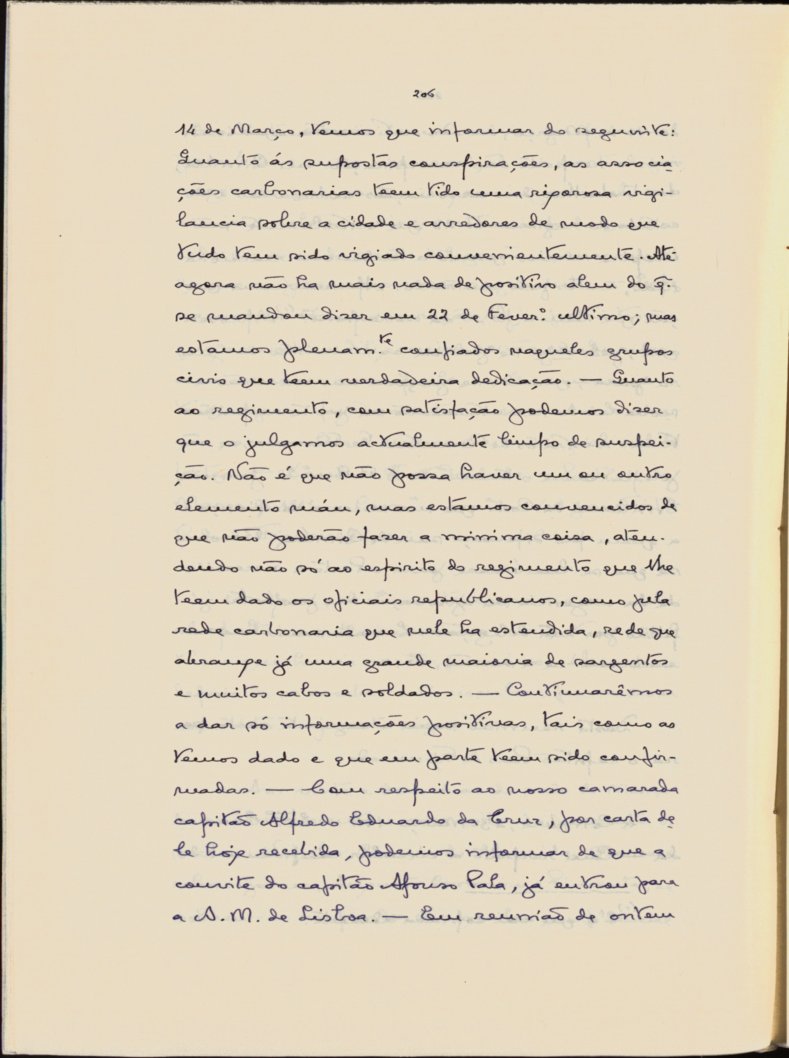 206
14 de Março, temos que informar do seguinte:
Quanto ás supostas conspirações, as associa-
ções carbonarias teem tido uma rigorosa vigi-
lancia sobre a cidade e arredores de modo que
tudo tem sido vigiado convenientemente. Até
agora não ha mais nada de positivo alem do q.
se mandou dizer em 22 de Fever.º ultimo; mas
estamos plenam.te confiados naqueles grupos
civis que teem verdadeira dedicação. — Quanto
ao regimento, com satisfação podemos dizer
que o julgamos actualmente limpo de suspei-
ção. Não é que não possa haver um ou outro
elemento máu, mas estamos convencidos de
que não poderão fazer a minima coisa, aten-
dendo não só ao espirito do regimento que lhe
teem dado os oficiais republicanos, como pela
rede carbonaria que nele ha estendida, rede que
abrange já uma grande maioria de sargentos
e muitos cabos e soldados. — Continuarêmos
a dar só informações positivas, tais como as
temos dado e que em parte teem sido confir-
madas. — Com respeito ao nosso camarada
capitão Alfredo Eduardo da Cruz, por carta de-
le hoje recebida, podemos informar de que a
convite do capitão Afonso Pala, já entrou para
a A. M. de Lisboa. — Em reunião de ontem